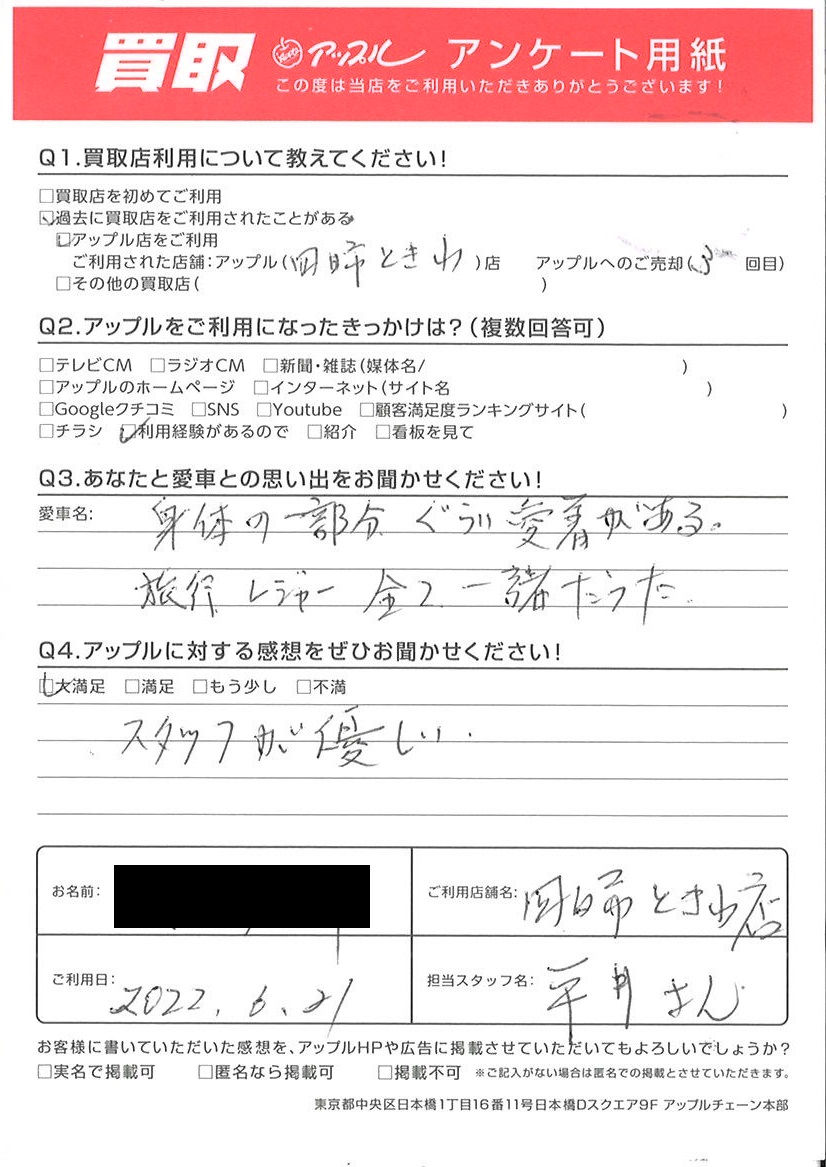 買取 Apple アップル アンケート用紙
この度は当店をご利用いただきありがとうございます!
Q1.買取店利用について教えてください!
□買取店を初めてご利用
☑過去に買取店をご利用されたことがある
☑アップル店をご利用
ご利用された店舗:アップル(四日市ときわ)店 アップルへのご売却(3回目)
□その他の買取店( )
Q2.アップルをご利用になったきっかけは?(複数回答可)
□テレビCM □ラジオCM □新聞・雑誌(媒体名/ )
□アップルのホームページ □インターネット(サイト名 )
□Googleクチコミ □SNS □Youtube □顧客満足度ランキングサイト( )
□チラシ ☑利用経験があるので □紹介 □看板を見て
Q3.あなたと愛車との思い出をお聞かせください!
愛車名: 身体の一部分ぐらい愛着がある。
旅行 レジャー 全て一諸だった。
Q4.アップルに対する感想をぜひお聞かせください!
☑大満足 □満足 □もう少し □不満
スタッフが優しい.
お名前: ご利用店舗名: 四日市ときわ店
ご利用日: 2022.6.21 担当スタッフ名: 平井さん
お客様に書いていただいた感想を、アップルHPや広告に掲載させていただいてもよろしいでしょうか?
□実名で掲載可 □匿名なら掲載可 □掲載不可 ※ご記入がない場合は匿名での掲載とさせていただきます。
東京都中央区日本橋1丁目16番11号日本橋Dスクエア9F アップルチェーン本部